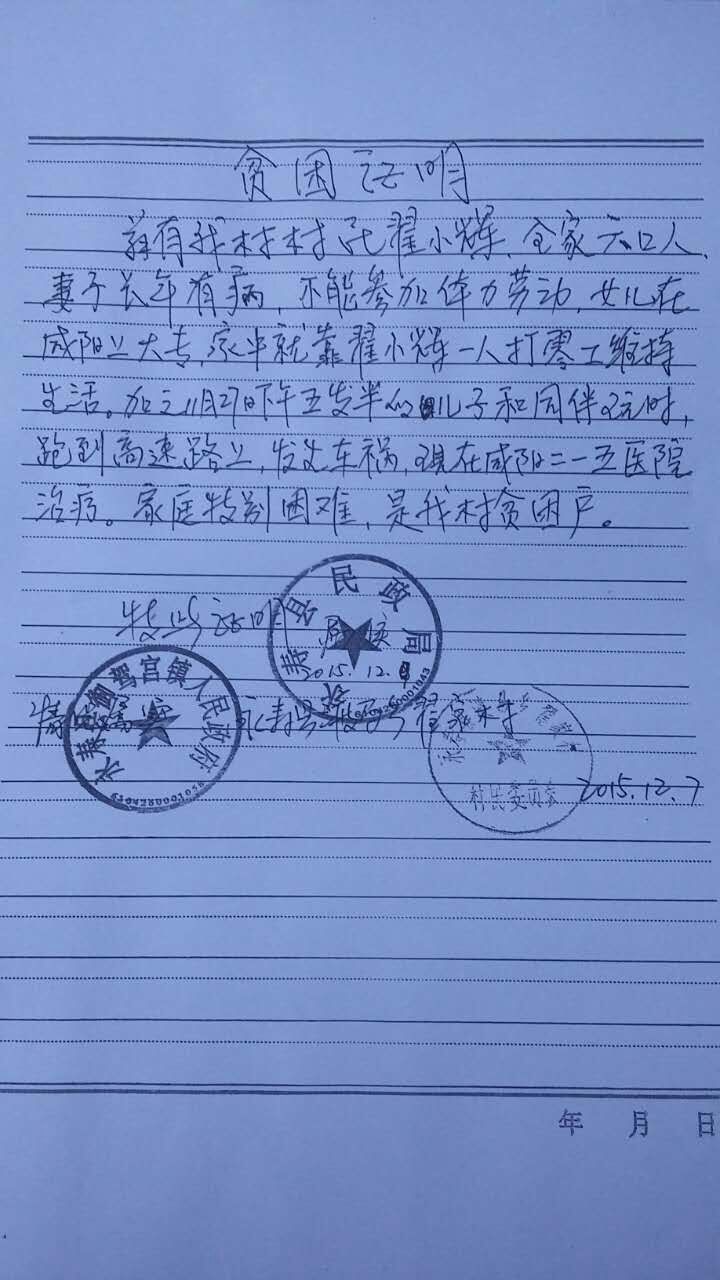 贫困证明
兹有我村村民翟小辉、全家六口人、
妻子长年有病,不能参加体力劳动,女儿在
咸阳上大专,家中就靠翟小辉一人打零工维持
生活。加之11月27日下午五岁半的儿子和同伴玩时,
跑到高速路上,发生车祸,现在咸阳二一五医院
治疗。家庭特别困难,是我村贫困户。
特此证明
永寿县民政局
2015.12.
6104260001043
永寿县 驾宫镇人民政府
永寿县 翟家村
村民委员会
2015.12.7
年 月 日